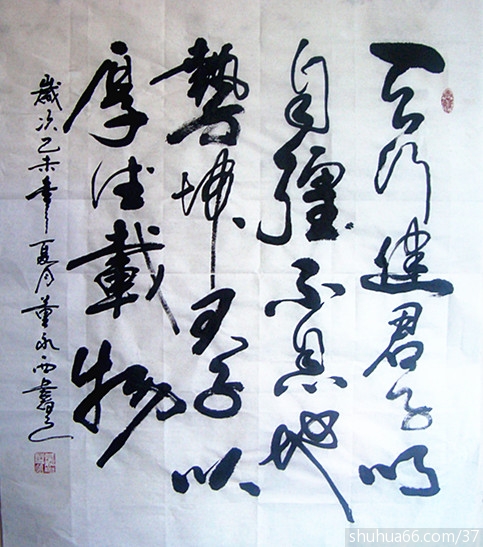 天行健君子以
自彊不息地
勢坤君子以
厚德載物
歲次乙未年夏月董永西書
shuhua66.com/37